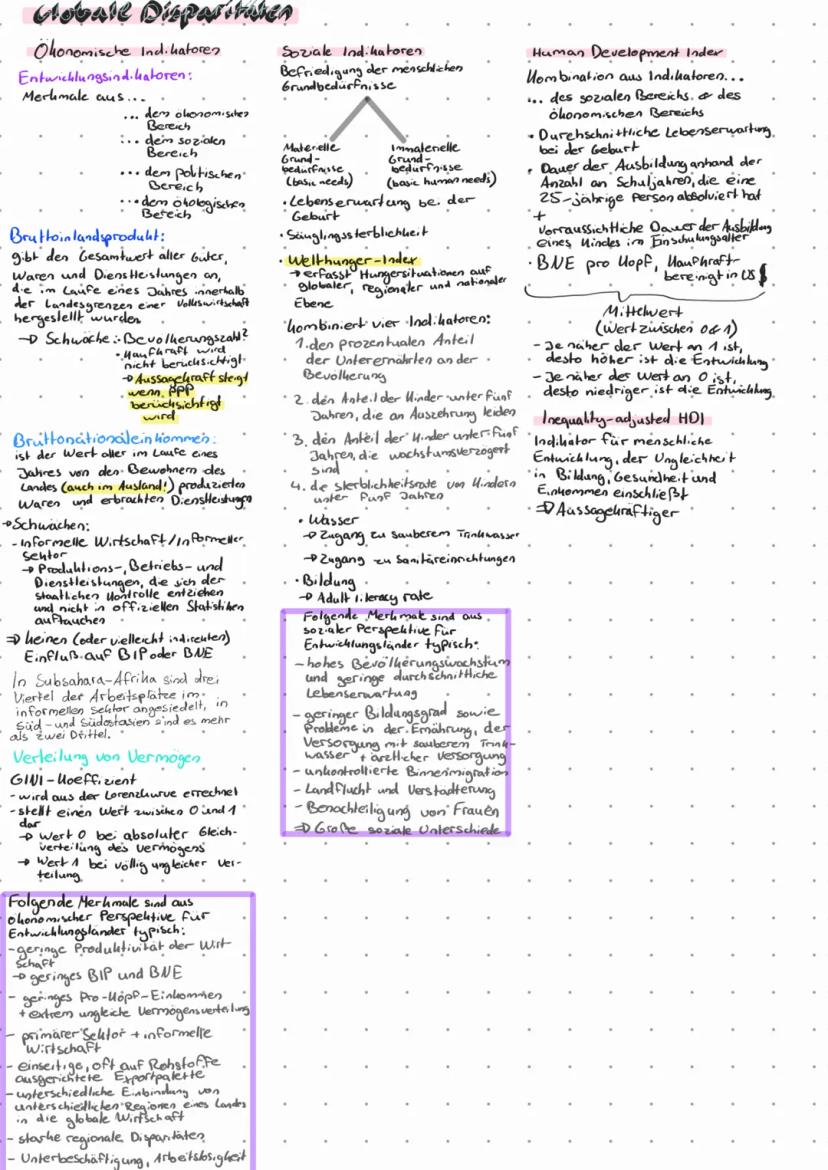 Globale Disparitäten
Ökonomische Indikatoren
Entwicklungsindikatoren:
Merkmale aus...
... dem ökonomischen
Bereich
... dem sozialen
Bereich
... dem politischen
Bereich
... dem ökologischen
Bereich
Bruttoinlandsprodukt:
gibt den Gesamtwert aller Güter,
Waren und Dienstleistungen an,
die im Laufe eines Jahres innerhalb
der Landesgrenzen einer Volkswirtschaft
hergestellt wurden
→ Schwäche: • Bevölkerungszahl?
• Kaufkraft wird
nicht berücksichtigt
→ Aussagekraft steigt
wenn PPP
berücksichtigt
wird
Bruttonationaleinkommen:
ist der Wert aller im Laufe eines
Jahres von den Bewohnern des
Landes (auch im Ausland!) produzierten
Waren und erbrachten Dienstleistungen
→ Schwächen:
- Informelle Wirtschaft/Informeller
Sektor
→ Produktions-, Betriebs- und
Dienstleistungen, die sich der
staatlichen Kontrolle entziehen
und nicht in offiziellen Statistiken
auftauchen
⇒ keinen (oder vielleicht indirekten)
Einfluß auf BIP oder BNE
In Subsahara-Afrika sind drei
Viertel der Arbeitsplätze im
informellen Sektor angesiedelt, in
Süd- und Südostasien sind es mehr
als zwei Drittel.
Verteilung von Vermögen
GINI-Koeffizient
- wird aus der Lorenzkurve errechnet
- stellt einen Wert zwischen 0 und 1
dar
→ Wert 0 bei absoluter Gleich-
verteilung des Vermögens
→ Wert 1 bei völlig ungleicher Ver-
teilung
Folgende Merkmale sind aus
ökonomischer Perspektive für
Entwicklungsländer typisch:
- geringe Produktivität der Wirt-
schaft
→ geringes BIP und BNE
- geringes Pro-Kopf-Einkommen
+ extrem ungleiche Vermögensverteilung
- primärer Sektor + informelle
Wirtschaft
- einseitige, oft auf Rohstoffe
ausgerichtete Exportpalette
- unterschiedliche Einbindung von
unterschiedlichen Regionen eines Landes
in die globale Wirtschaft
- starke regionale Disparitäten
- Unterbeschäftigung, Arbeitslosigkeit
Soziale Indikatoren
Befriedigung der menschlichen
Grundbedürfnisse
Materielle
Grund-
bedürfnisse
(basic needs)
Immaterielle
Grund-
bedürfnisse
(basic human needs)
• Lebenserwartung bei der
Geburt
• Säuglingssterblichkeit
• Welthunger-Index
→ erfasst Hungersituationen auf
globaler, regionaler und nationaler
Ebene
Kombiniert vier Indikatoren:
1. den prozentualen Anteil
der Unterernährten an der
Bevölkerung
2. den Anteil der Kinder unter fünf
Jahren, die an Auszehrung leiden
3. den Anteil der Kinder unter fünf
Jahren, die wachstumsverzögert
sind
4. die Sterblichkeitsrate von Kindern
unter fünf Jahren
• Wasser
→ Zugang zu sauberem Trinkwasser
→ Zugang zu Sanitäreinrichtungen
• Bildung
→ Adult literacy rate
Folgende Merkmale sind aus
sozialer Perspektive für
Entwicklungsländer typisch:
- hohes Bevölkerungswachstum
und geringe durchschnittliche
Lebenserwartung
- geringer Bildungsgrad sowie
Probleme in der Ernährung, der
Versorgung mit sauberem Trink-
wasser + ärztlicher Versorgung
- unkontrollierte Binnenmigration
- Landflucht und Verstädterung
- Benachteiligung von Frauen
⇒ Große soziale Unterschiede
Human Development Index
Kombination aus Indikatoren...
... des sozialen Bereichs & des
ökonomischen Bereichs
• Durchschnittliche Lebenserwartung
bei der Geburt
• Dauer der Ausbildung anhand der
Anzahl an Schuljahren, die eine
25-jährige Person absolviert hat
+
Vorraussichtliche Dauer der Ausbildung
eines Kindes im Einschulungsalter
• BNE pro Kopf, Kaufkraft-
bereinigt in US $
Mittelwert
(Wert zwischen 0 & 1)
- Je näher der Wert an 1 ist,
desto höher ist die Entwicklung
- Je näher des Wert an 0 ist,
desto niedriger ist die Entwicklung
Inequality-adjusted HDI
Indikator für menschliche
Entwicklung, der Ungleichheit
in Bildung, Gesundheit und
Einkommen einschließt
⇒ Aussagekräftiger